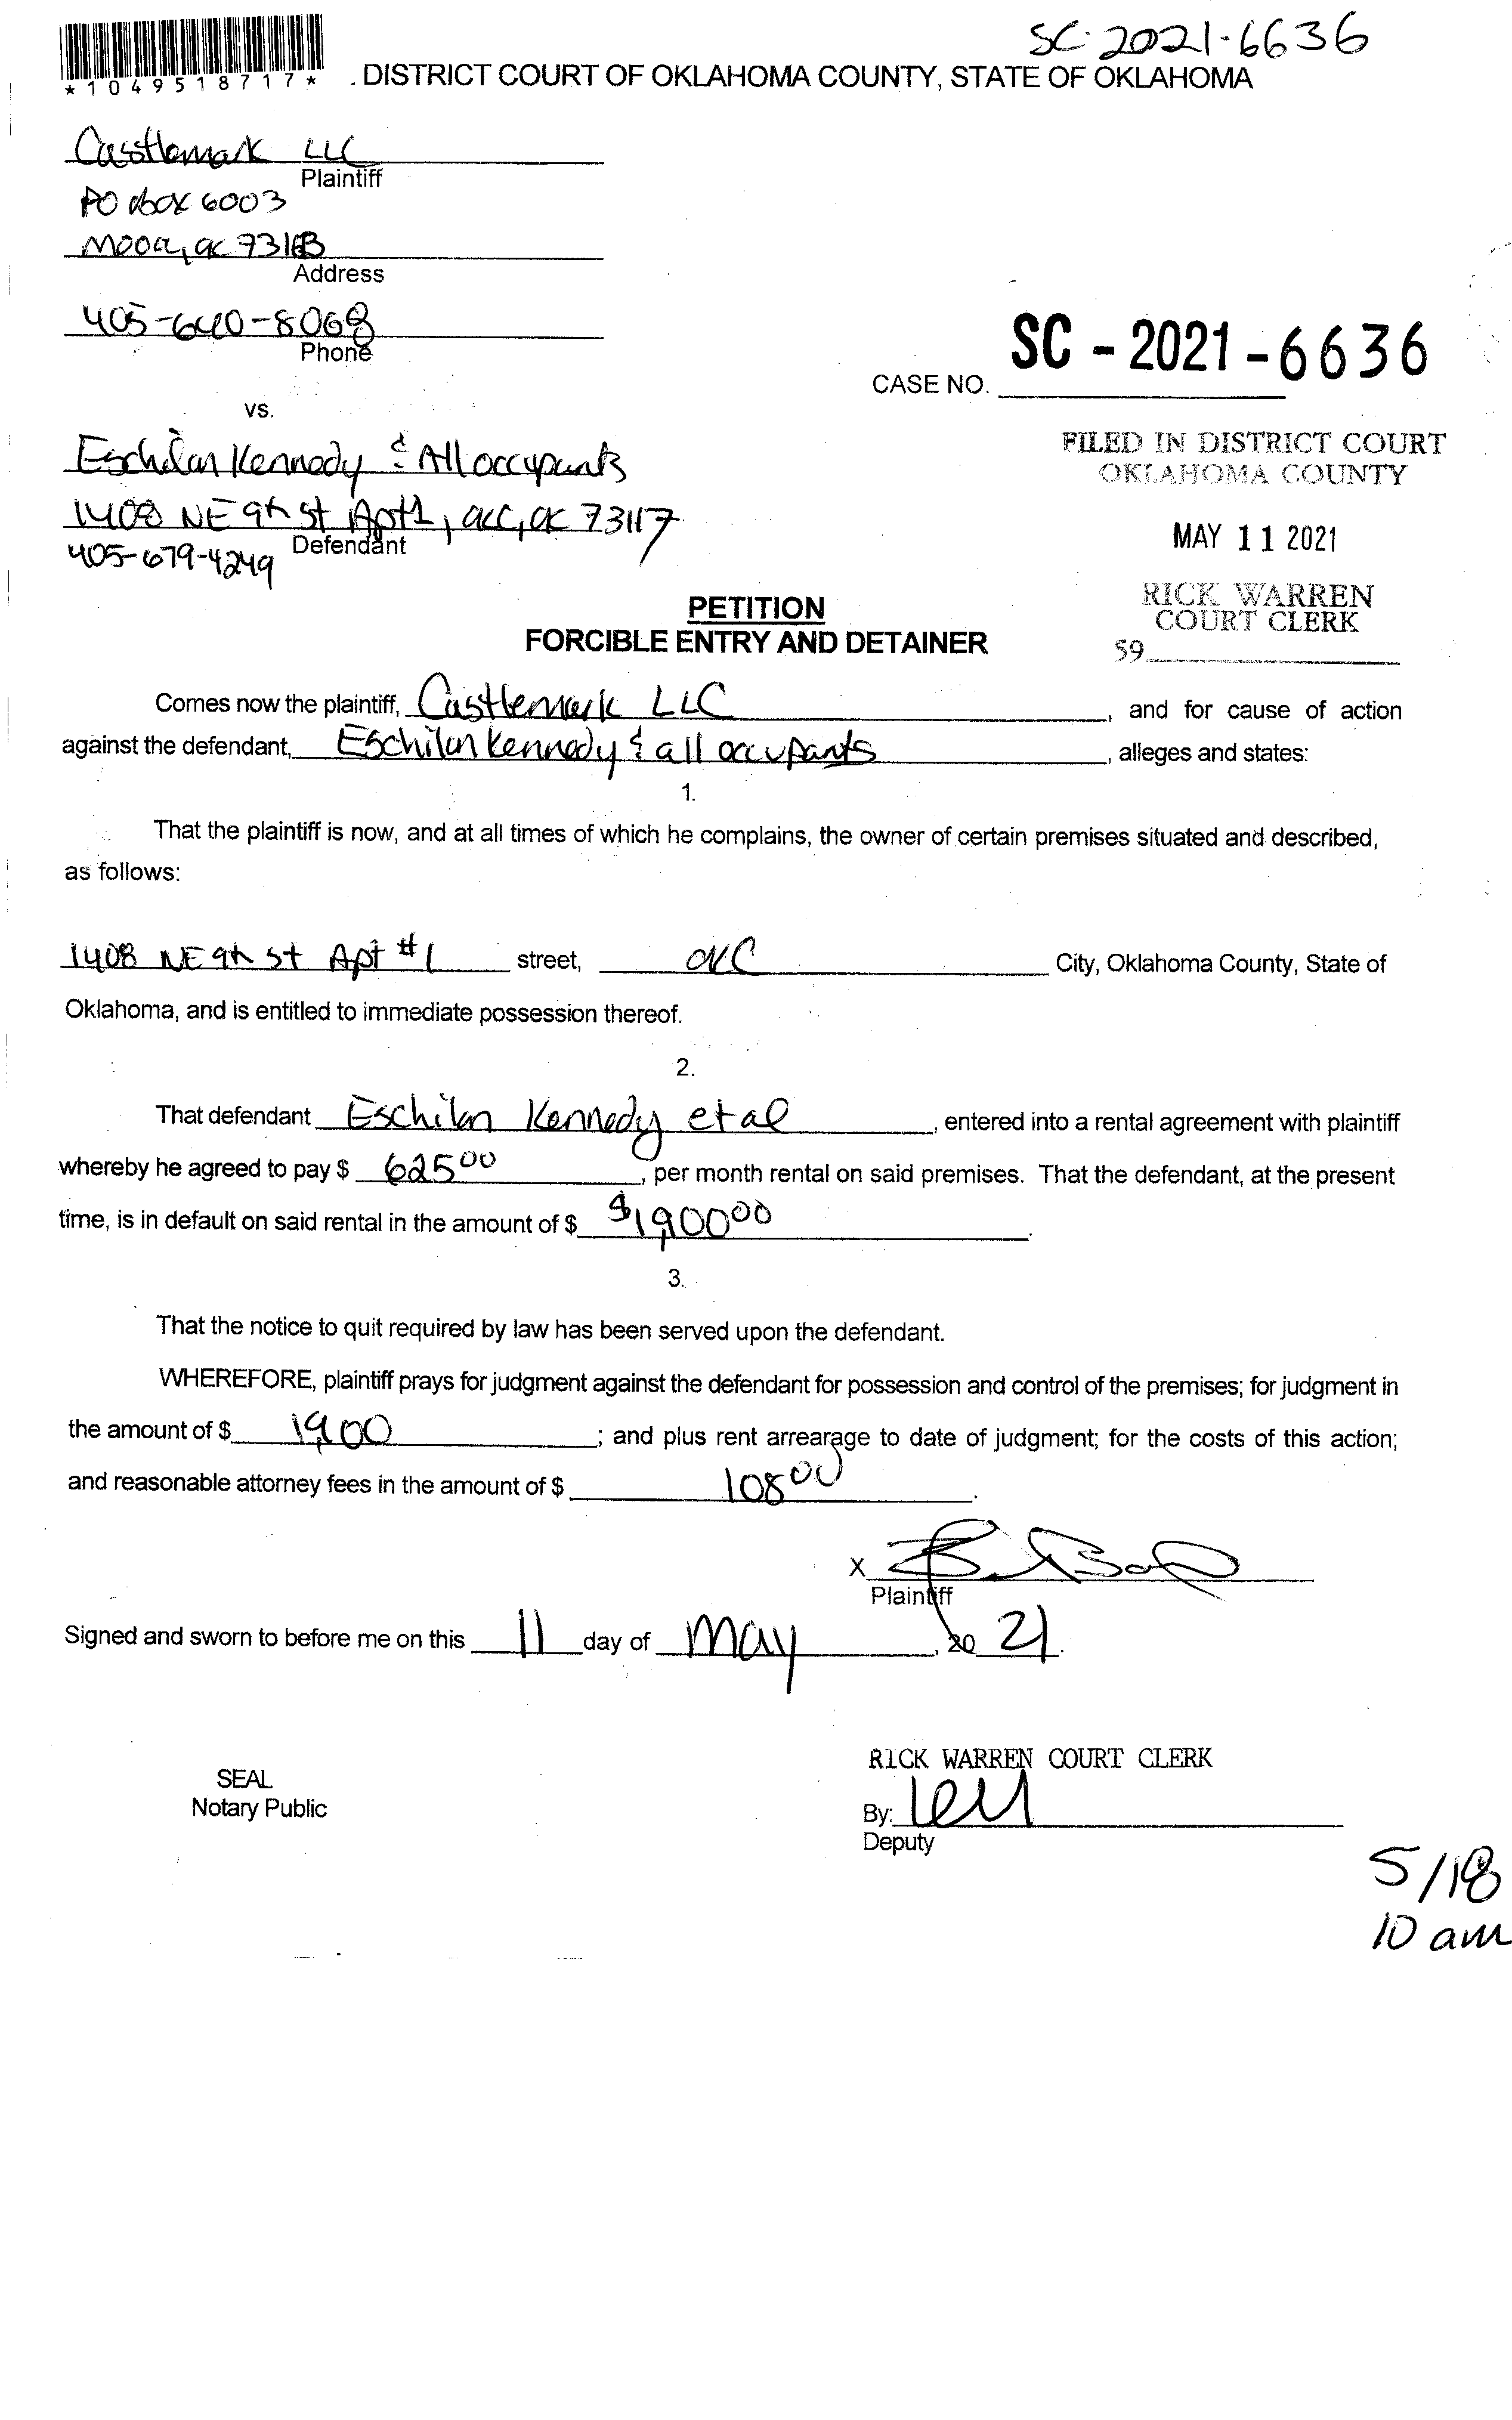 SC-2021-6636
*1049518717*
. DISTRICT COURT OF OKLAHOMA COUNTY, STATE OF OKLAHOMA
Castlemark LLC
Plaintiff
PO Box 6003
Moore, OK 73153
Address
405-640-8068
Phone
SC - 2021 - 6636
CASE NO.
vs.
Eschilon Kennedy & All occupants
1408 NE 9th St Apt 1, OKC, OK 73117
405-679-4249
Defendant
FILED IN DISTRICT COURT
OKLAHOMA COUNTY
MAY 11 2021
RICK WARREN
COURT CLERK
59
PETITION
FORCIBLE ENTRY AND DETAINER
Comes now the plaintiff, Castlemark LLC, and for cause of action
against the defendant, Eschilon Kennedy & all occupants, alleges and states:
1.
That the plaintiff is now, and at all times of which he complains, the owner of certain premises situated and described,
as follows:
1408 NE 9th St Apt #1 street, OKC City, Oklahoma County, State of
Oklahoma, and is entitled to immediate possession thereof.
2.
That defendant Eschilon Kennedy et al, entered into a rental agreement with plaintiff
whereby he agreed to pay $ 625 00, per month rental on said premises. That the defendant, at the present
time, is in default on said rental in the amount of $ $1,900 00.
3.
That the notice to quit required by law has been served upon the defendant.
WHEREFORE, plaintiff prays for judgment against the defendant for possession and control of the premises; for judgment in
the amount of $ 1,900; and plus rent arrearage to date of judgment; for the costs of this action;
and reasonable attorney fees in the amount of $ 108 00.
X
Plaintiff
Signed and sworn to before me on this 11 day of May, 20 21.
SEAL
Notary Public
RICK WARREN COURT CLERK
By:
Deputy
5/18
10 am